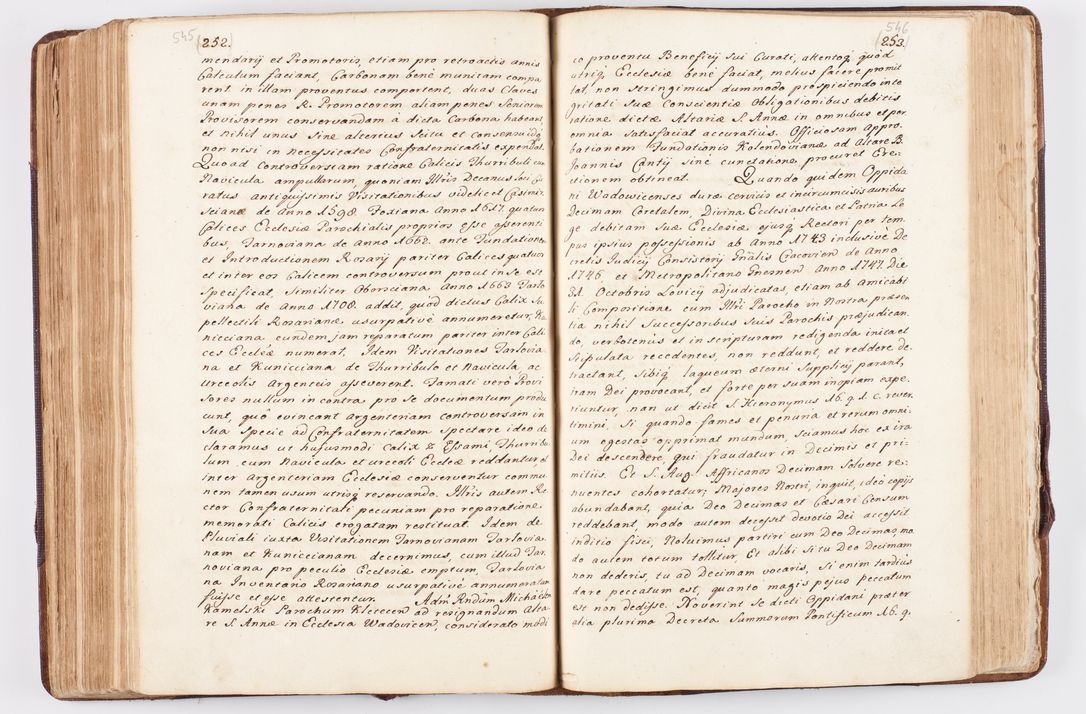 545
252.
mendarij et Promotoris, etiam pro retroactis annis
Calculum faciant, Carbonam bene munitam compa
rent in illam proventus comportent, duas Claves
unam penes R. Promotorem aliam penes Seniorem
Provisorem conservandam à dicta Carbona habeant,
et nihil unus sine alterius scitu et consensu idq
non nisi in necessitates Confraternitatis expendat.
Quoad Controversiam ratione Calicis Thurribuli cum
Navicula ampullarum, quoniam Illris Decanus loci Cu
ratus antiquissimis Visitationibus videlicet Casimir
sciana de Anno 1598. Foxiana Anno 1617. quatuor
Calices Ecclesiæ Parochialis proprios esse asserenti
bus, Tarnoviana de Anno 1662. ante Fundationem
et Introductionem Rosarij pariter Calices quatuor
et inter eos Calicem controversum prout in se est
specificat, Similiter Oborsciana Anno 1663 Tarlo
viana de Anno 1708. addit, quod dictus Calix Su
pellectili Rosarianæ usurpativè annumeretur, Ku
nicciana eundem jam reparatum pariter inter Cali
ces Eccleæ numerat, Idem Visitationes Tarlovia
na et Kunicciana de Thurribulo et Navicula, ac
Urceolis Argenteis asseverent. Famati verò Provi
sores nullum in contra pro se documentum produ
cunt, quo evincant Argenteriam controversam in
sua specie ad Confraternitatem spectare ideo de
claramus ut hujusmodi Calix Thurribu
lum cum Navicula et urceoli Eccleæ reddantur, et
inter Argenteriam Ecclesiæ conserventur commu
nem tamen usum utriq reservando. Illris autem Re
ctor Confraternitati pecuniam pro reparatione
memorati Calicis erogatam restituat. Idem de
Pluviali iuxta Visitationem Tarnovianam Tarlovia
nam et Kuniccianam decernimus, cum illud Tar
noviana pro peculio Ecclesiæ emptum, Tarlovia
na Inventario Rosariano usurpativè annumeratum
fuisse et esse attestentur. Adm Rndum Michaelem
Kamelski Parochum Klececen ad resignandum Alta
re S. Annæ in Ecclesia Wadovicen, considerato modi
546
253.
co proventu Beneficij sui Curati, attentoq quod
utriq Ecclesiæ benè faciat, melius facere promit
tat, non stringimus dummodo prospiciendo inte
gritati suæ Conscientiæ Obligationibus debitis
ratione dictæ Altariæ S. Annæ in omnibus et per
omnia satisfaciat accuratius. Officiosam Appro
bationem Fundationis Kolendovianæ ad Altare B.
Joannis Cantij sine cunctatione, procuret Ere
ctionem obtineat. Quando quidem Oppida
ni Wadowicenses duræ cervicis et incircumcisis auribus
Decimam Coretalem, Divina Ecclesiastica et Patria Le
ge debitam suæ Ecclesiæ ejusq Rectori per tem
pus ipsius possessionis ab Anno 1743 inclusivè De
cretis Judicij Consistorij Gnâlis Cracovien de Anno
1746 et Metropolitano Gnesnen Anno 1747. Die
31. Octobris Lovicij adjudicatas, etiam ab Amicabi
li Compositione cum Illri Parocho in Nostra præsen
tia nihil Successoribus suis Parochis præjudican
do, verbotenus et in scripturam redigenda inita et
stipulata recedentes, non reddunt, et reddere de
tractant, sibiq laqueum æterni Supplicij parant,
iram Dei provocant, et forte per suam inopiam expe
riuntur, nam ut dicit S. Hieronymus 16. q. 1. c. rever
timini, Si quando fames et penuria et rerum omni
um egestas opprimat mundum, sciamus hoc ex ira
Dei descendere, qui fraudatur in Decimis et pri
mitiis. Et S. Aug. Affricanos Decimam solvere re
nuentes cohortatur, Majores Nostri, inquit, ideò copijs
abundabant, quia Deo Decimas et Cæsari Censum
reddebant, modo autem decessit devotio Dei accessit
inditio fisci, Noluimus partiri cum Deo Decimas, mo
do autem totum tollitur, Et alibi si tu Deo Decimam
non dederis, tu ad Decimam vocaris, Si enim tardius
dare peccatum est, quanto magis pejus peccatum
est non dedisse. Noverint se dicti Oppidani præter
alia plurima Decreta Summorum Pontificum 16. q.